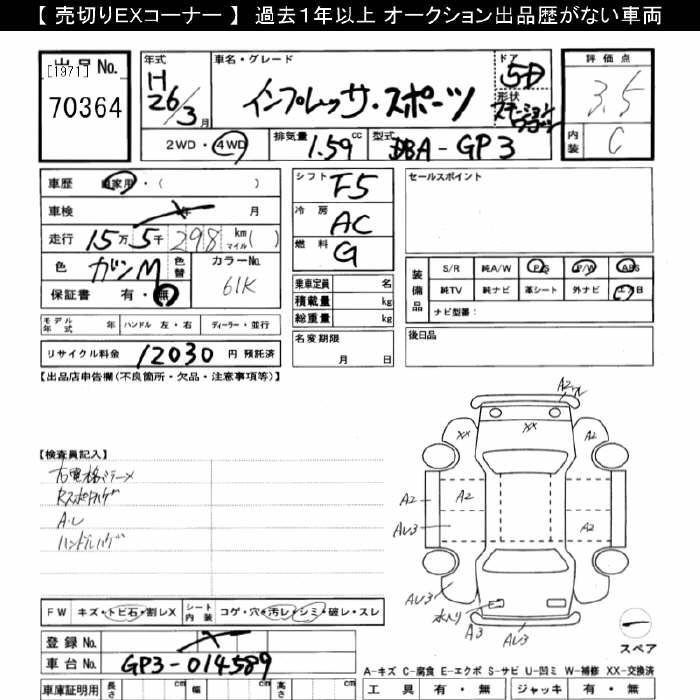 【 売切りEXコーナー 】 過去１年以上 オークション出品歴がない車両
出品No.
[1971]
70364
年式
H
26/3月
車名・グレード
インプレッサ・スポーツ
ドア
5D
形状
ステーションワゴン
評価点
3.5
内装
C
2WD・4WD
排気量
1.59cc
型式
DBA-GP3
車歴
自家用・( )
車検
年 月
走行
15万5千298
km
マイル
( )
色
ガンM
色替
カラーNo.
61K
保証書 有・無
シフト F5
冷房 AC
燃料 G
乗車定員 名
積載量 kg
総重量 kg
セールスポイント
装備品
S/R 純A/W P/S P/W ABS
純TV 純ナビ 革シート 外ナビ エアB
ナビ型番：
モデル年式 年 ハンドル 左・右 ディーラー・並行
リサイクル料金 12030 円 預託済
名変期限
月 日
後日品
【出品店申告欄(不良箇所・欠品・注意事項等)】
【検査員記入】
右電格ミラーメ
A・L
ハンドルハゲ
A2
XX
XX
A2
A2
A2
AU3
A2
AU3
水入り
A3
AU3
スペア
FW キズ・トビ石・割レX
シート内装 コゲ・穴・汚レ・シミ・破レ・スレ
登録No.
車台No.
GP3-014589
車庫証明用 長さ cm 幅 cm 高さ cm
A-キズ C-腐食 E-エクボ S-サビ U-凹ミ W-補修 XX-交換済
工具 有・無 ジャッキ 有・無